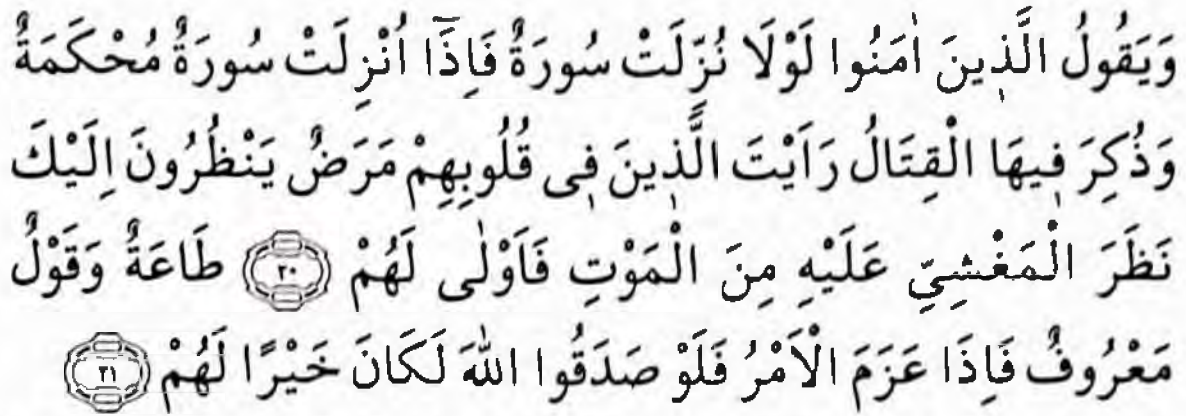 وَيَقُولُ الَّذ۪ينَ اٰمَنُوا لَوْلَا نُزِّلَتْ سُورَةٌ فَاِذَٓا اُنْزِلَتْ سُورَةٌ مُحْكَمَةٌ
وَذُكِرَ ف۪يهَا الْقِتَالُ رَاَيْتَ الَّذ۪ينَ ف۪ى قُلُوبِهِمْ مَرَضٌ يَنْظُرُونَ اِلَيْكَ
نَظَرَ الْمَغْشِىِّ عَلَيْهِ مِنَ الْمَوْتِ فَاَوْلٰى لَهُمْ ﴿٢٠﴾ طَاعَةٌ وَقَوْلٌ
مَعْرُوفٌ فَاِذَا عَزَمَ الْاَمْرُ فَلَوْ صَدَقُوا اللّٰهَ لَكَانَ خَيْرًا لَهُمْ ﴿٢١﴾